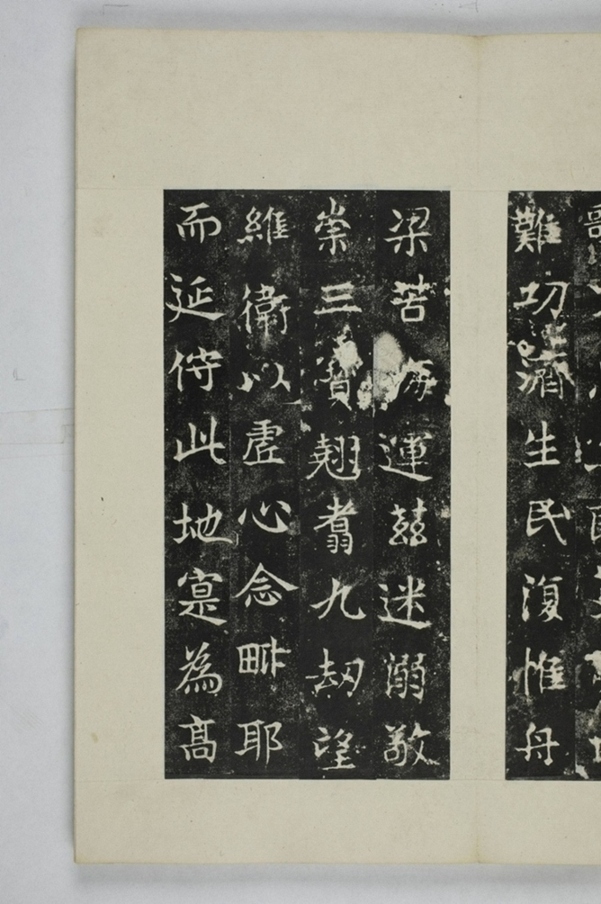 難功濟生民復惟舟
梁苦海運茲迷溺敬
崇三寶翹翥九劫望
維衛以虛心念毗耶
而延佇此地寔為髙